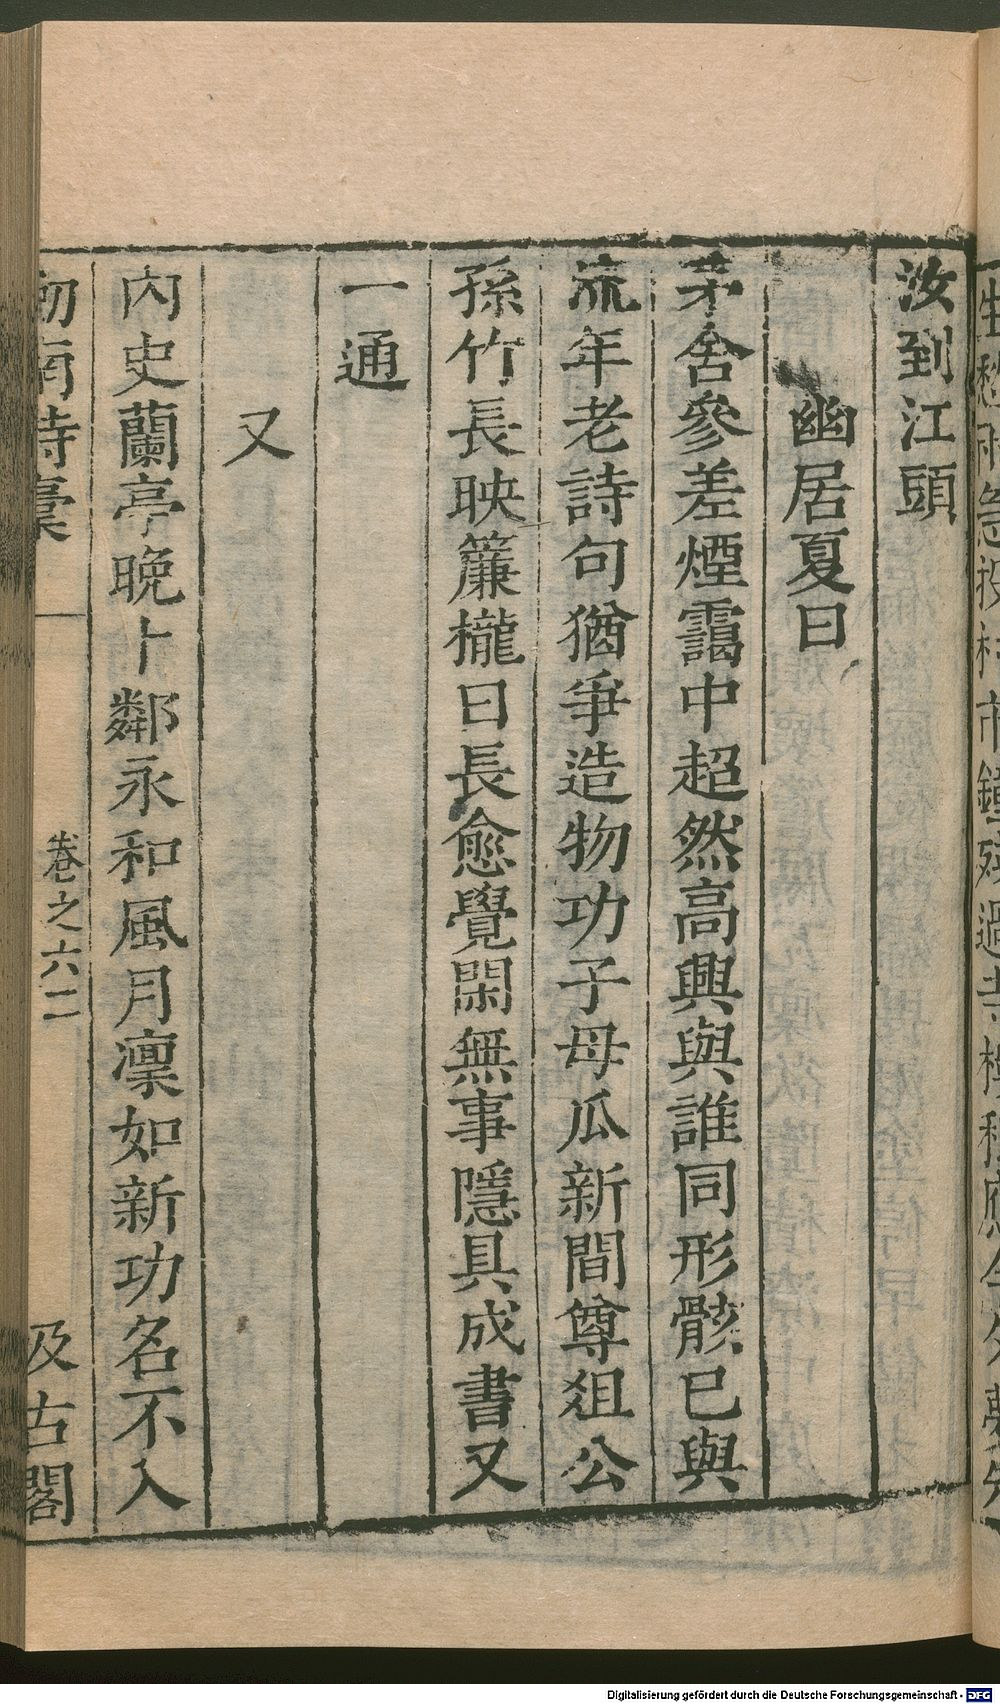 汝到江頭
幽居夏日
茅舍參差煙靄中超然高興與誰同形骸已與
流年老詩句猶爭造物功子母瓜新間尊俎公
孫竹長映簾櫳日長愈覺閑無事隱具成書又
一通
又
內史蘭亭晚卜鄰永和風月凜如新功名不入
劍南詩稾
卷之六
二
及古閣
Digitalisierung gefördert durch die Deutsche Forschungsgemeinschaft - DFG